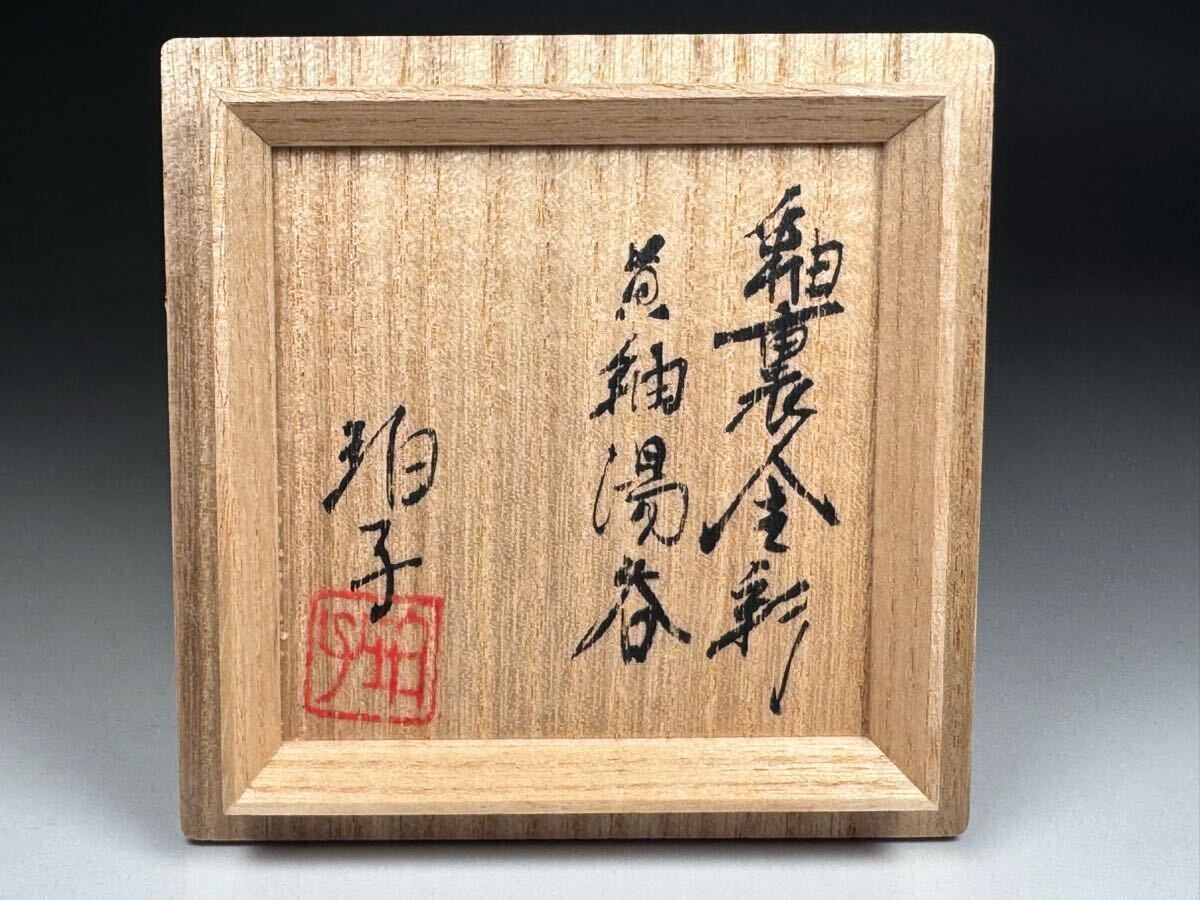 釉裏金彩
黄釉湯呑
珀子